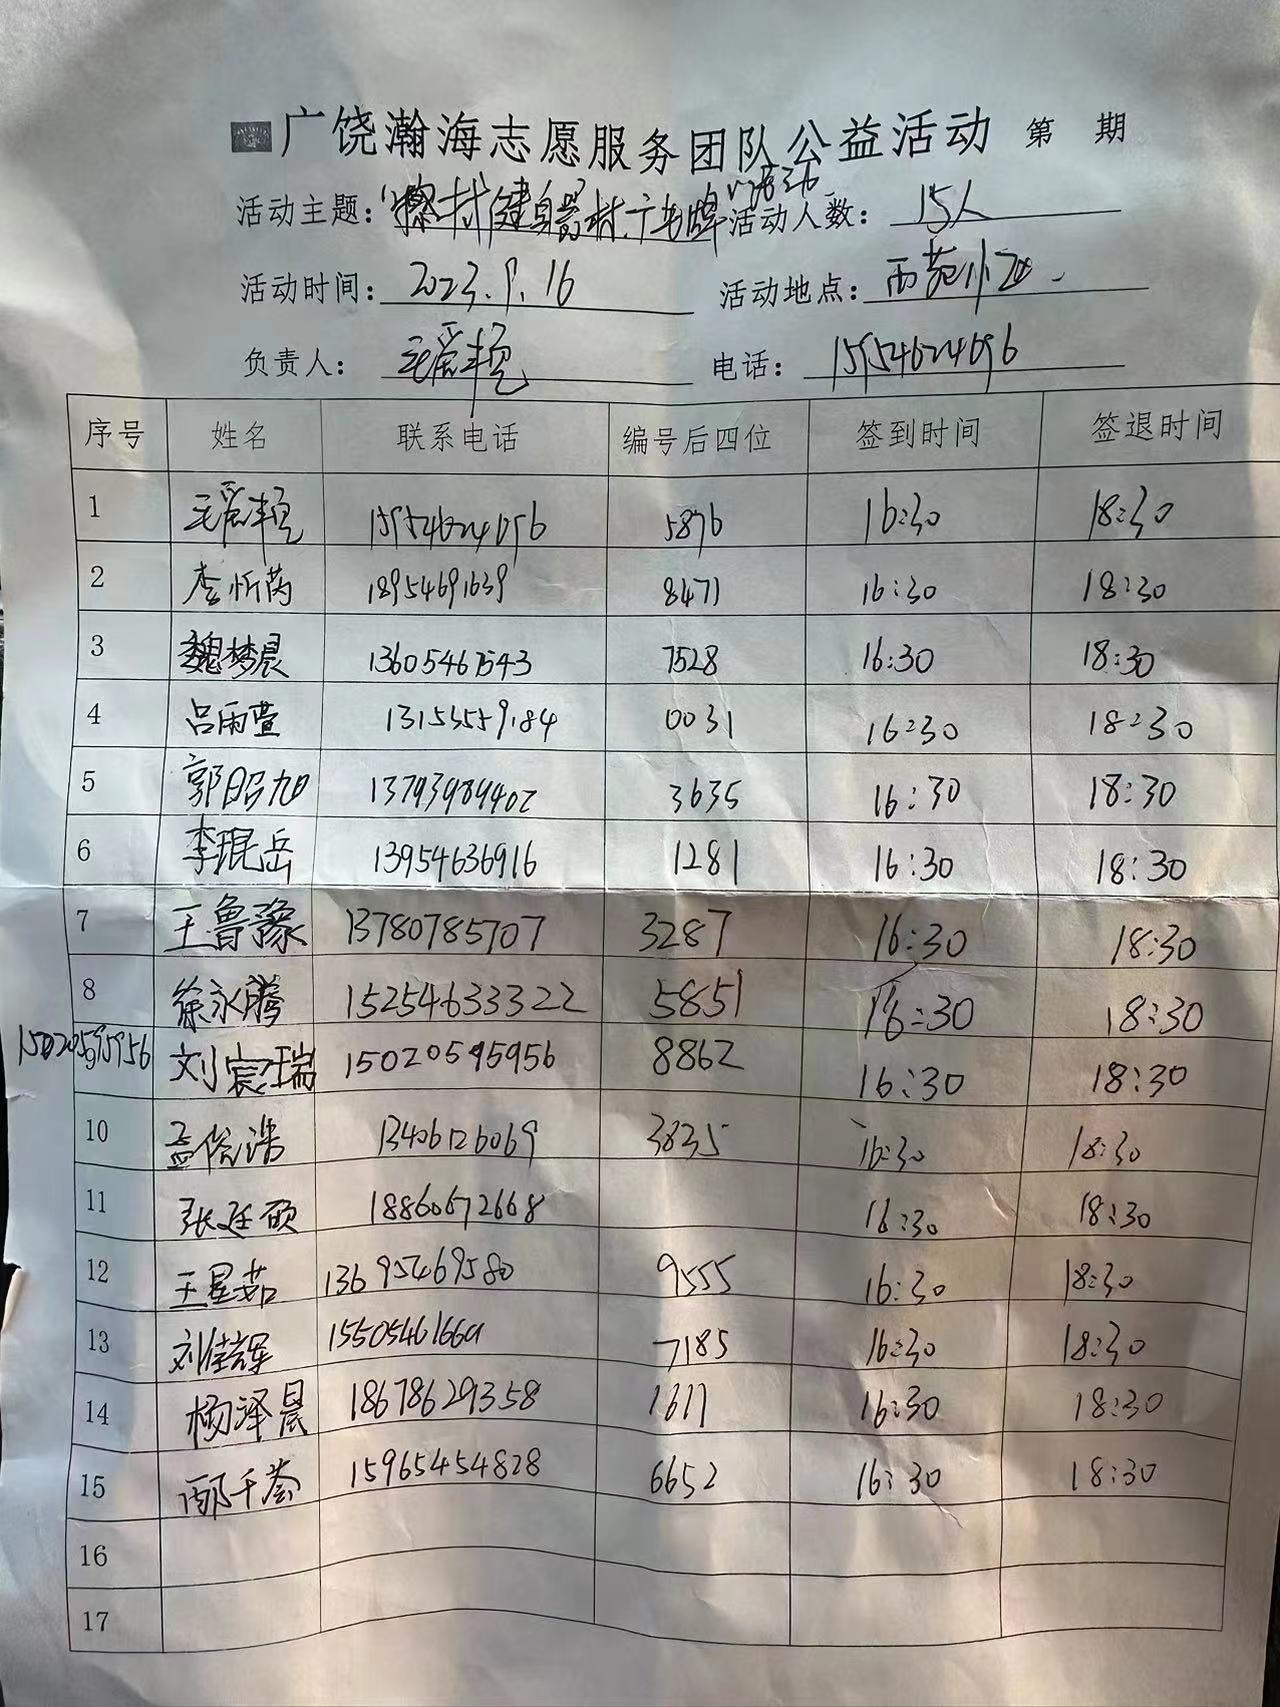 广饶瀚海志愿服务团队公益活动 第 期
活动主题："擦拭健身器材、广告牌"活动 活动人数：15人
活动时间：2023.9.16 活动地点：西苑小区
负责人： 电话：15954624696
序号 姓名 联系电话 编号后四位 签到时间 签退时间
1 15954624696 5876 16:30 18:30
2 李忻芮 18954691639 8471 16:30 18:30
3 魏梦晨 13605467543 7528 16:30 18:30
4 吕雨萱 13153559184 0031 16:30 18:30
5 郭昭旭 13793989402 3635 16:30 18:30
6 李琨岳 13954636916 1281 16:30 18:30
7 王鲁豫 13780785707 3287 16:30 18:30
8 徐永腾 15254633322 5851 16:30 18:30
15020595956 9 刘宸瑞 15020595956 8862 16:30 18:30
10 孟俊浩 13406126069 3835 16:30 18:30
11 张廷硕 18860672668 16:30 18:30
12 王星茹 13695469580 9555 16:30 18:30
13 刘佳辉 7185 16:30 18:30
14 杨泽晨 18678629358 1611 16:30 18:30
15 15965454828 6652 16:30 18:30
16
17